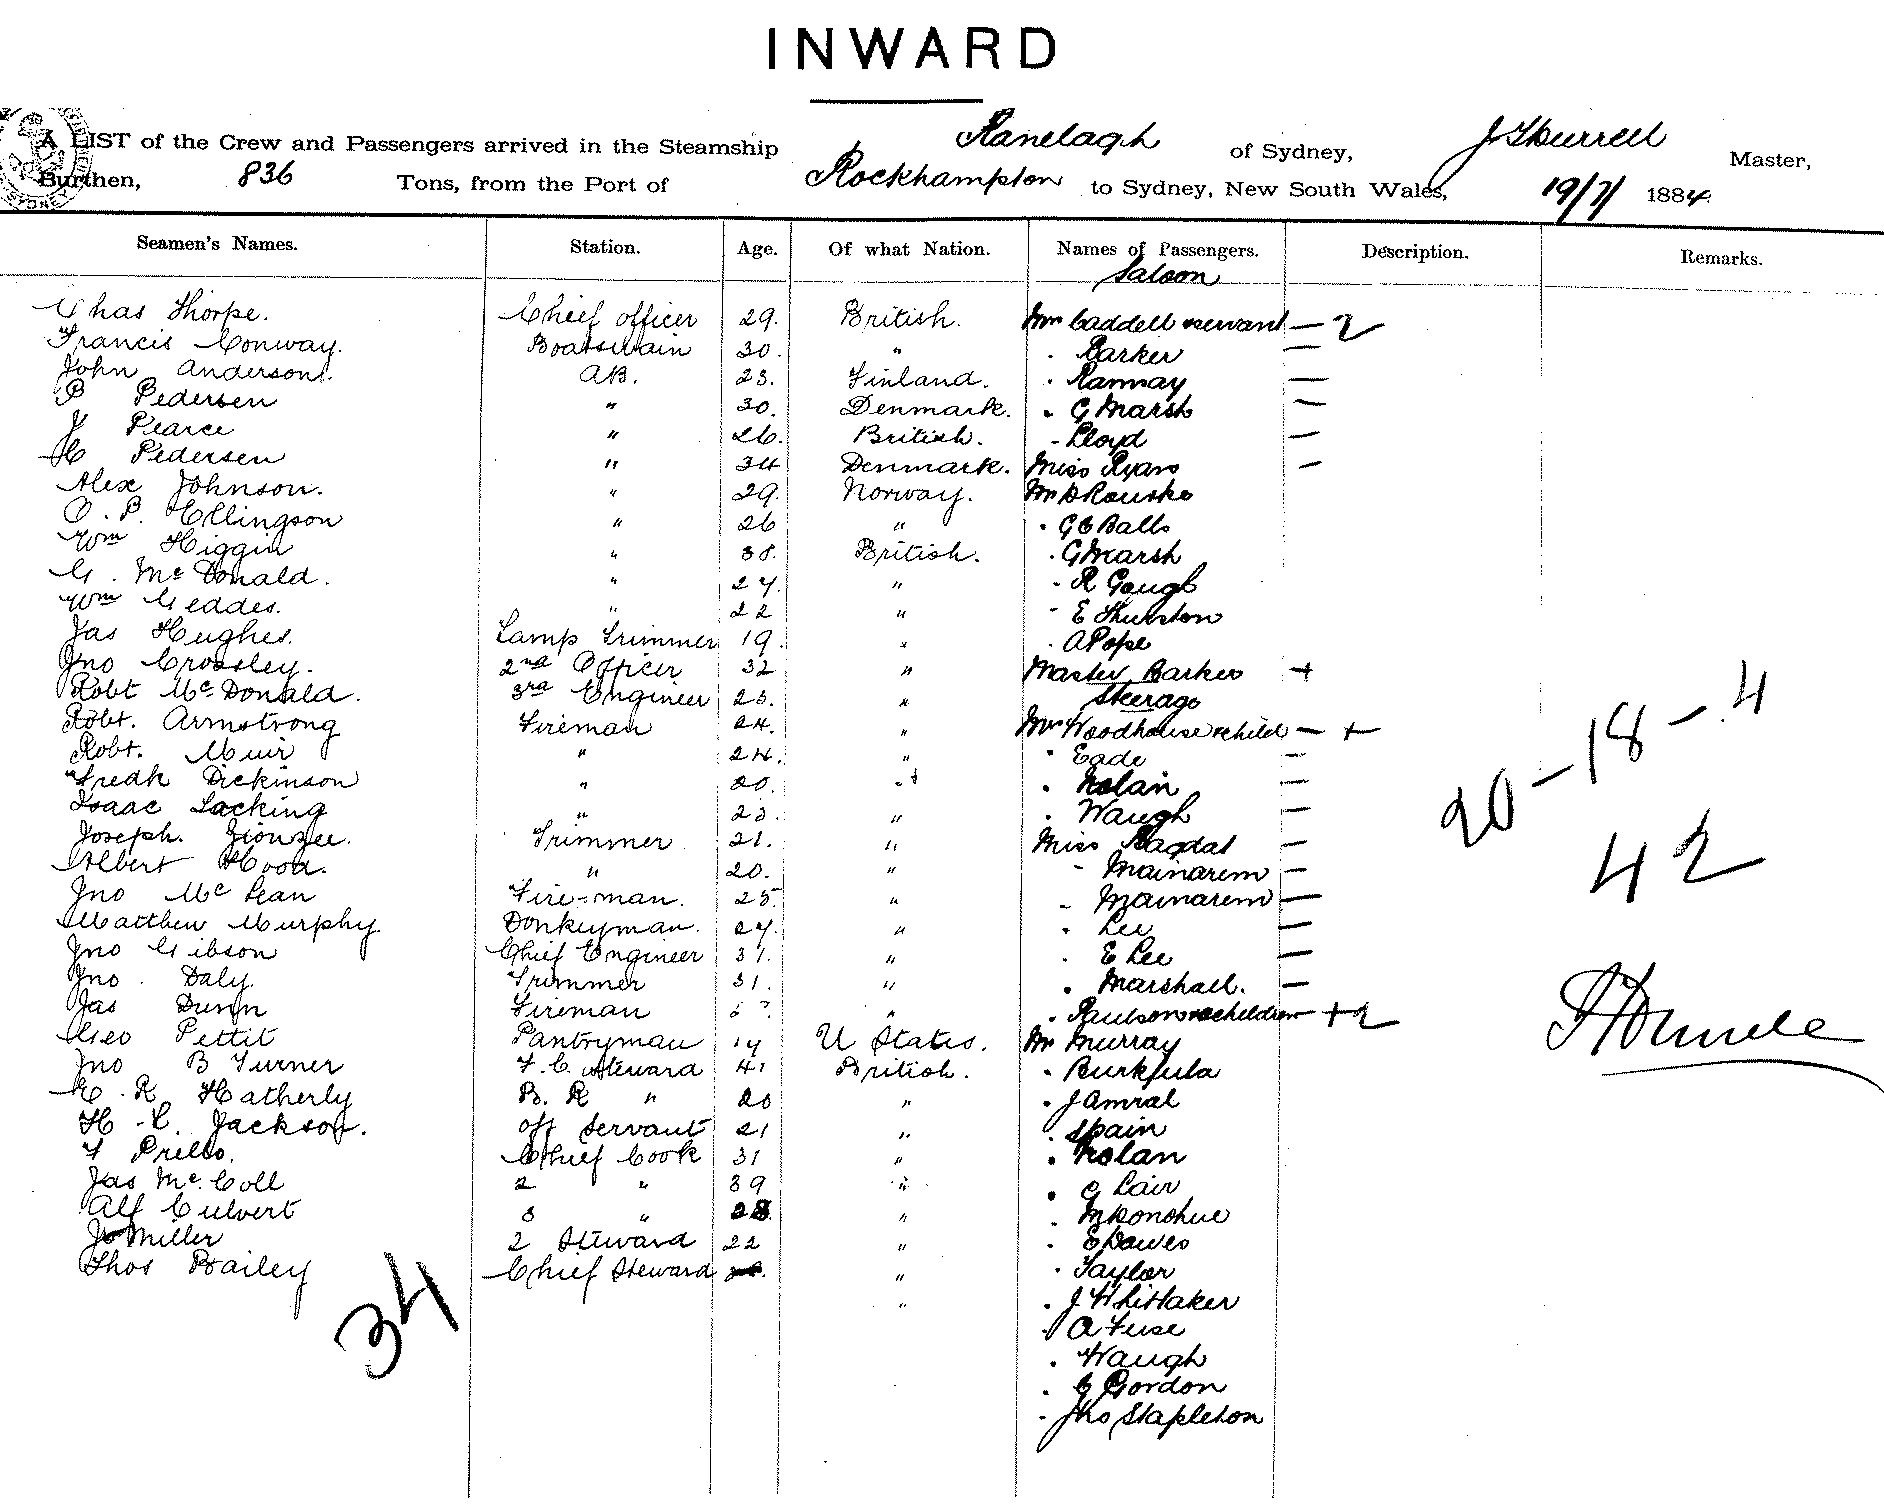 INWARD
A LIST of the Crew and Passengers arrived in the Steamship Ranelagh of Sydney, J Skurrell Master,
Burthen, 836 Tons, from the Port of Rockhampton to Sydney, New South Wales, 19/7/ 1884.
Seamen's Names. Station. Age. Of what Nation. Names of Passengers. Description. Remarks.
Saloon
Chas Thorpe. Chief officer 29. British. Mrs Caddell & servant — 2
Francis Conway. Boatswain 30. " · Barker —
John Anderson. AB. 23. Finland. · Rannay —
P Pedersen " 30. Denmark. · G Marsh —
J Pearce " 26. British. - Lloyd —
H Pedersen " 34 Denmark. Miss Ryan —
Alex Johnson. " 29. Norway. Mr D Rourke
O. P. Ellingson " 26 " · G E Balls
Wm Higgin " 38. British. · G Marsh
G. McDonald. " 27. " · R Gough
Wm Geddes. " 22 " - E Thurston
Jas Hughes. Lamp Trimmer 19. " · A Pope
Jno Crossley. 2nd Officer 32 " Master Barker +
Robt McDonald. 3rd Engineer 25. " Steerage
Robt. Armstrong Fireman 24. " Mrs Woodhouse & child — +
Robt. Muir " 24. " · Eade —
Fredk Dickinson " 20. " · Nolan —
Isaac Lacking " 23. " · Waugh —
Joseph. Trimmer 21. " Miss Ragdat —
Albert Hood. " 20. " - Mainarem —
Jno McLean Fire-man. 25. " - Mainarem —
Matthew Murphy Donkeyman. 27. " · Lee —
Jno Gibson Chief Engineer 31. " · E Lee —
Jno. Daly. Trimmer 31. " · Marshall. —
Jas Dunn Fireman " · Paulson & children — + 2
Geo Pettit Pantryman 17 U States. Mr Murray
Jno B Turner F. C. Steward 41 British. · Burkjula
E. R Hatherly B. R " 20 " · J Amral
H. C. Jackson. off servant 21 " · Spain
F Prello. Chief Cook 31 " · Nolan
Jas McColl 2 " 39 " · G Lair
Alf Culvert 3 " 28 " · McDonohue
Jo Miller 2 Steward 22 " · E Dawes
Thos Bailey Chief Steward " · Taylor
" · J Whittaker
· A Fuse
· Waugh
· G Gordon
· Jno Stapleton
34
20 — 18 — 4
42